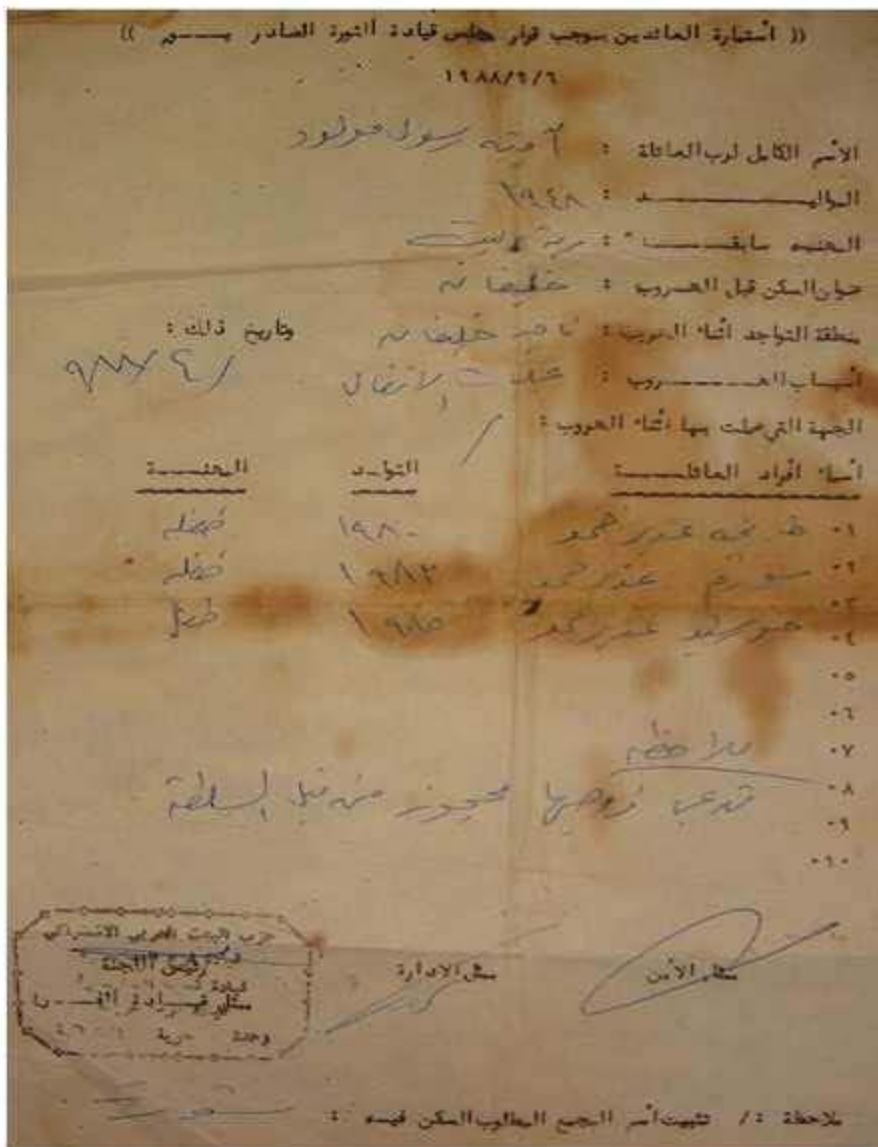 (( أستمارة العائدين بموجب قرار مجلس قيادة الثورة الصادر بـــــــ ))
١٩٨٨/٩/٦
الاسم الكامل لرب العائلة : آمينه رسول مولود
المواليــــــــــد : ١٩٤٨
المهنـه سابقــــــا" : ربة بيت
عنوان السكن قبل الهــروب : خليفان
منطقة التواجد اثناء الهروب : ناحية خليفان وتاريخ ذلك :
أسباب الهــــــــروب : عمليات الانفال / ٤ / ٩٨٨
الجهة التي عملت بها اثناء الهروب : /
أسماء افراد العائلـــــــة التولــد المهنــــة
٠١ ١٩٨٠ طفله
٠٢ ١٩٨٣ طفله
٠٣
٠٤ ١٩٨٥ طفل
٠٥
٠٦
٠٧ ملاحظه
٠٨ زوجها محجوز من قبل السلطة
٠٩
٠١٠
حزب البعث العربي الاشتراكي
رئيس اللجنة
قيادة
ممثل الأمن ممثل الادارة
ملاحظة :/ تثبيت أسم المجمع المطلوب السكن فيــه :